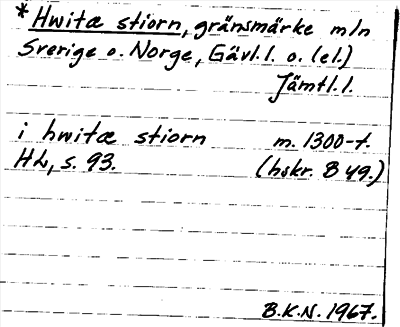 * Hwitæ stiorn, gränsmärke mln
Sverige o. Norge, Gävl.l. o. (el.)
Jämtl.l.
i hwitæ stiorn m. 1300-t.
HL, s. 93. (hskr. B 49.)
B.K.N. 1967.